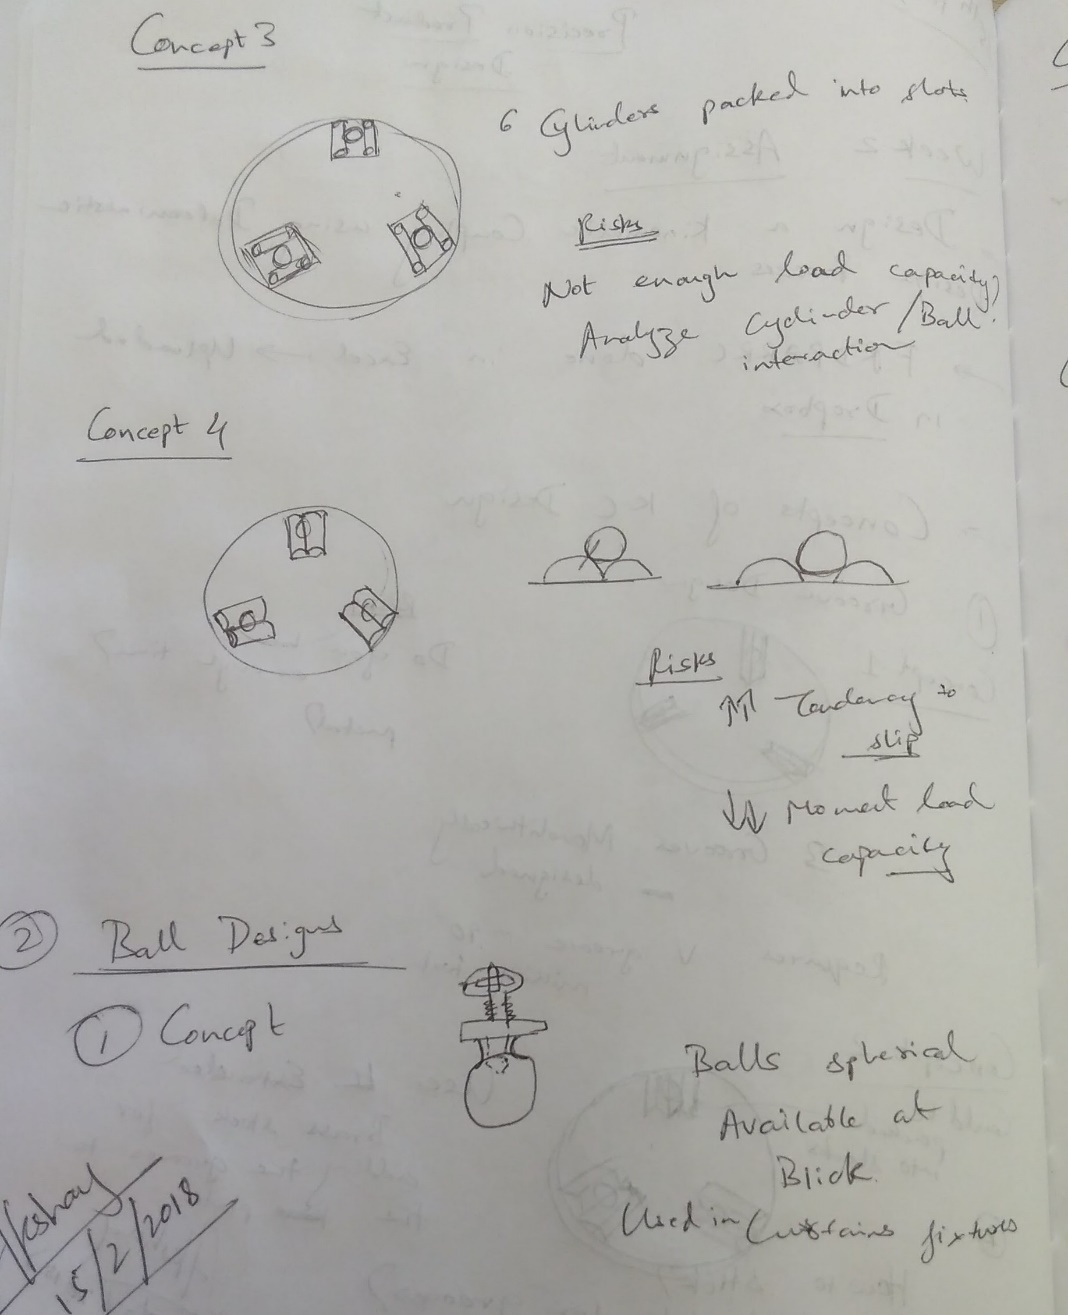 Concept 3
6 Cylinders packed into slots
Risks
Not enough load capacity,
Analyze Cyclinder/Ball.
interaction
Concept 4
Risks
↑↑ Tendency to
slip
↓↓ Moment load
capacity
2 Ball Designs
1 Concept
Balls spherical
Available at
Blick
Used in Curtains fixtures
Akshay
15/2/2018